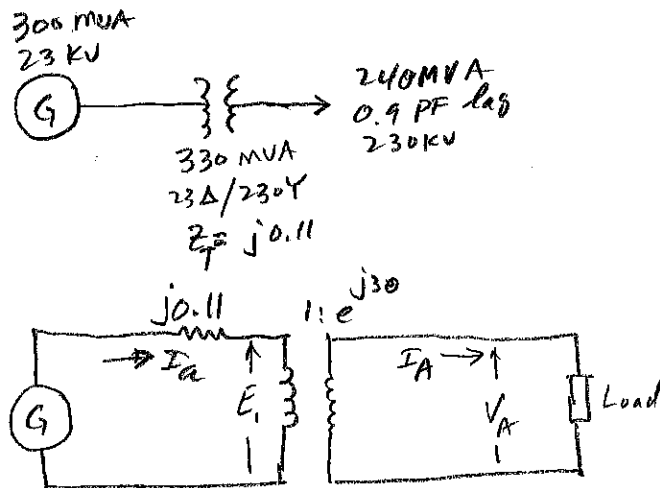 300 MVA
23 KV
G
240MVA
0.9 PF lag
230KV
330 MVA
23Δ/230Y
Z_T = j0.11
j0.11
1: e^j30
I_a
E_1
I_A
V_A
Load
G